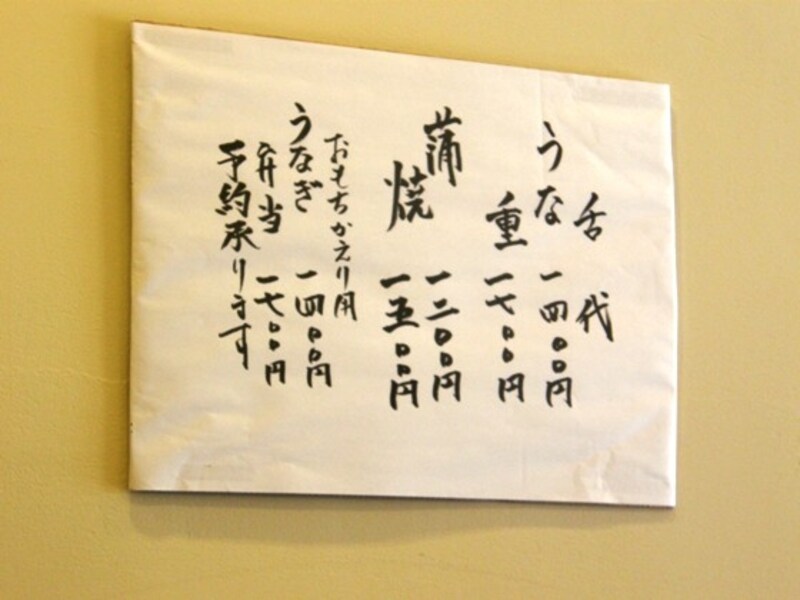 舌代
うな重 一四〇〇円
一七〇〇円
蒲焼 一二〇〇円
一五〇〇円
おもちかえり用
うなぎ弁当 一四〇〇円
一七〇〇円
予約承ります